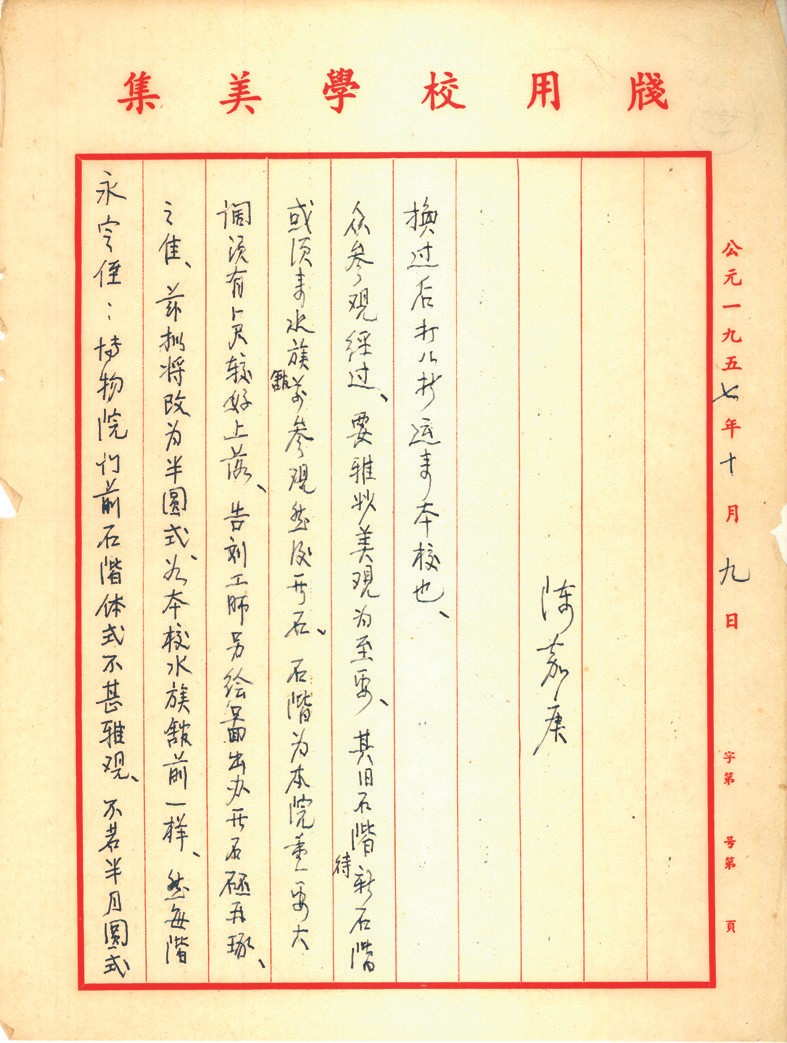 集美學校用牋
永定侄：博物院门前石階体式不甚雅观、不若半月圆式
之佳、兹拟将改为半圆式、如本校水族舘前一样、然每階
阔须有尺较好上落、告刘工师另绘圖出办开石再琢、
或须来水族舘前参观然后开石、石階为本院重要大
众参观经过、要雅妙美观为至要、其旧石階待新石階
换过后打运来本校也、
陈嘉庚
公元一九五七年十月九日
字第 号第 頁